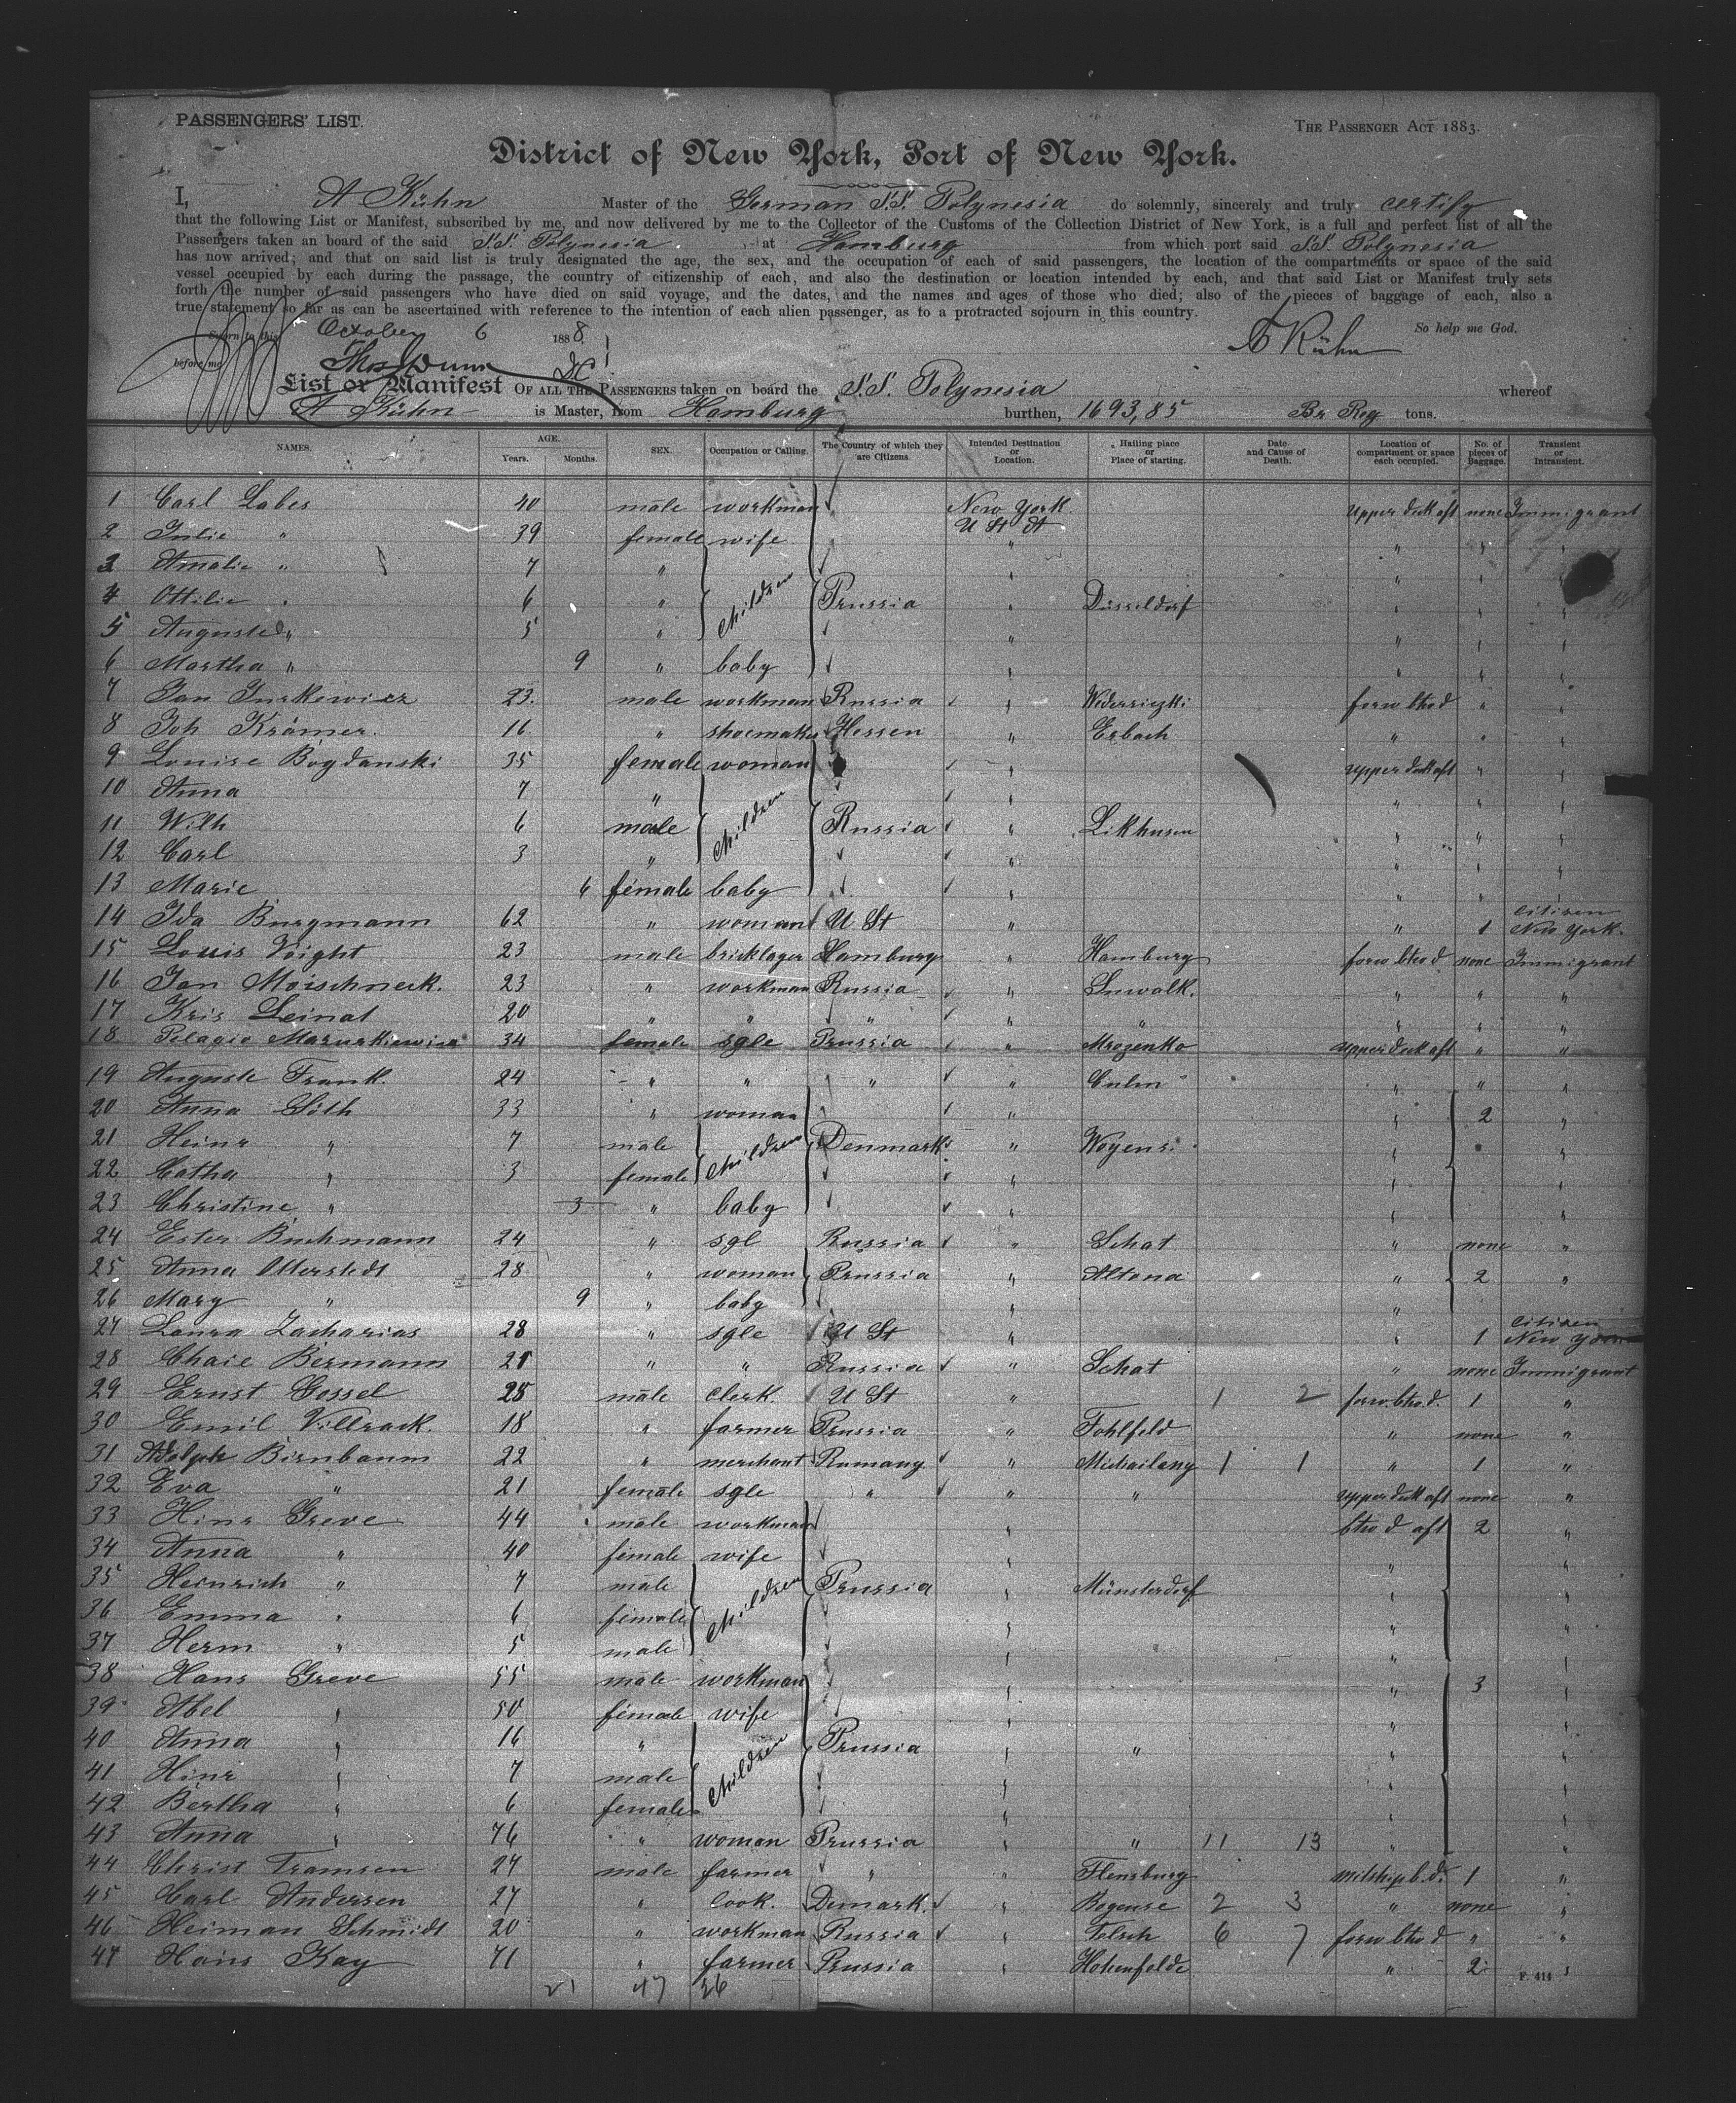 PASSENGERS' LIST.
THE PASSENGER ACT 1883.
District of New York, Port of New York.
I, A Kühn Master of the German S.S. Polynesia do solemnly, sincerely and truly certify
that the following List or Manifest, subscribed by me, and now delivered by me to the Collector of the Customs of the Collection District of New York, is a full and perfect list of all the
Passengers taken an board of the said S.S. Polynesia at Hamburg from which port said S.S. Polynesia
has now arrived; and that on said list is truly designated the age, the sex, and the occupation of each of said passengers, the location of the compartments or space of the said
vessel occupied by each during the passage, the country of citizenship of each, and also the destination or location intended by each, and that said List or Manifest truly sets
forth the number of said passengers who have died on said voyage, and the dates, and the names and ages of those who died; also of the pieces of baggage of each, also a
true statement so far as can be ascertained with reference to the intention of each alien passenger, as to a protracted sojourn in this country.
Sworn to this October 6 1888 So help me God.
before me A Kühn
List or Manifest OF ALL THE PASSENGERS taken on board the S.S. Polynesia whereof
A Kühn is Master, from Hamburg burthen, 1693,85 Br Reg tons.
NAMES. AGE. Years. Months. SEX. Occupation or Calling. The Country of which they are Citizens Intended Destination or Location. Hailing place or Place of starting. Date and Cause of Death. Location of compartment or space each occupied. No. of pieces of Baggage. Transient or Intransient.
1 Carl Labes 40 male workman New York U St upper deck aft none Immigrant
2 Julie " 39 female wife " " " "
3 Amalie " 7 " children " " " "
4 Ottilie " 6 " Prussia " Düsseldorf " " "
5 Auguste " 5 " " " " "
6 Martha " 9 " baby " " " "
7 Jan Jurkewicz 23 male workman Russia " forw btw d " "
8 Joh Krämer 16 " shoemaker Hessen " Erbach " " "
9 Louise Bogdanski 35 female woman " upper deck aft " "
10 Anna 7 " children " " " "
11 Wilh 6 male Russia " Likhusen " " "
12 Carl 3 " " " " "
13 Marie 6 female baby " " " "
14 Ida Burgmann 62 " woman U St " " 1 citizen New York.
15 Louis Voight 23 male bricklayer Hamburg " Hamburg forw btw d none Immigrant
16 Jan Moischneck. 23 " workman Russia " Suwalk. " " "
17 Kris Leinat 20 " " " " " " " "
18 Pelagie Mazurkiewicz 34 female sgle Prussia " Mrozenko upper deck aft " "
19 Auguste Frank. 24 " " " " Culm " " "
20 Anna Lith 33 " woman " " 2 "
21 Heinr " 7 male children Denmark " Woyens " "
22 Catha " 3 female " " "
23 Christine " 3 " baby " " "
24 Ester Buchmann 24 " sgl Russia " Schat " none "
25 Anna Otterstedt 28 " woman Prussia " Altona " 2 "
26 Mary " 9 " baby " " "
27 Laura Zacharias 28 " sgle U St " " 1 citizen New York
28 Chaie Bermann 21 " " Russia " Schat " none Immigrant
29 Ernst Gossel 28 male clerk. U St " 1 2 forw. btw. d. 1 "
30 Emil Villrock. 18 " farmer Prussia " Fohlfeld " none "
31 Adolph Birnbaum 22 " merchant Rumany " Michaileny 1 1 " 1 "
32 Eva " 21 female sgle " " " upper deck aft none "
33 Hinr Greve 44 male workman " btw d aft 2 "
34 Anna " 40 female wife " " "
35 Heinrich " 7 male children Prussia " Münsterdorf "
36 Emma " 6 female " " "
37 Herm " 5 male " " "
38 Hans Greve 55 male workman " " 3 "
39 Abel " 50 female wife " " "
40 Anna " 16 " children Prussia " " " "
41 Hinr " 7 male " " "
42 Bertha " 6 female " " "
43 Anna " 76 " woman Prussia " " 11 13 " "
44 Christ Tramsen 24 male farmer " " Flensburg midship b. d. 1 "
45 Carl Andersen 27 " cook. Demark. " Bogense 2 3 " none "
46 Heiman Schmidt 20 " workman Russia " Telsch 6 7 forw btw d " "
47 Hans Kay 71 " farmer Prussia " Hohenfelde " 2 "
21 47 26
F. 414